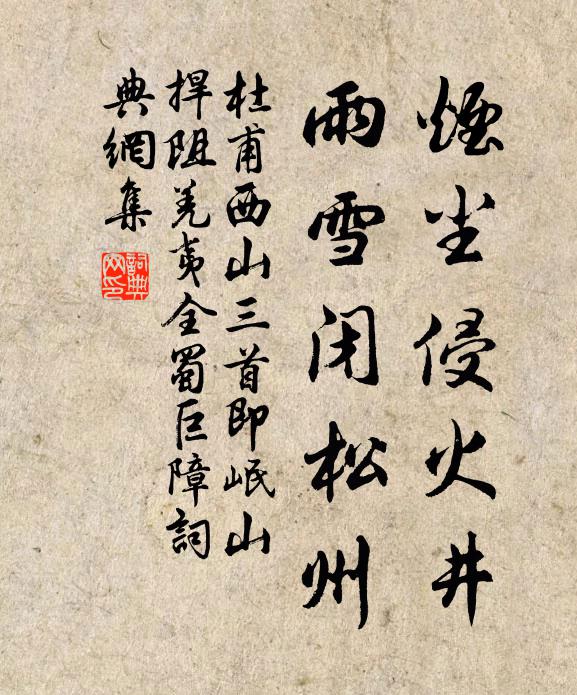 煙尘侵火井
雨雪閉松州
杜甫西山三首即岷山
捍阻羌夷全蜀巨障詞
典網集
詞典网印